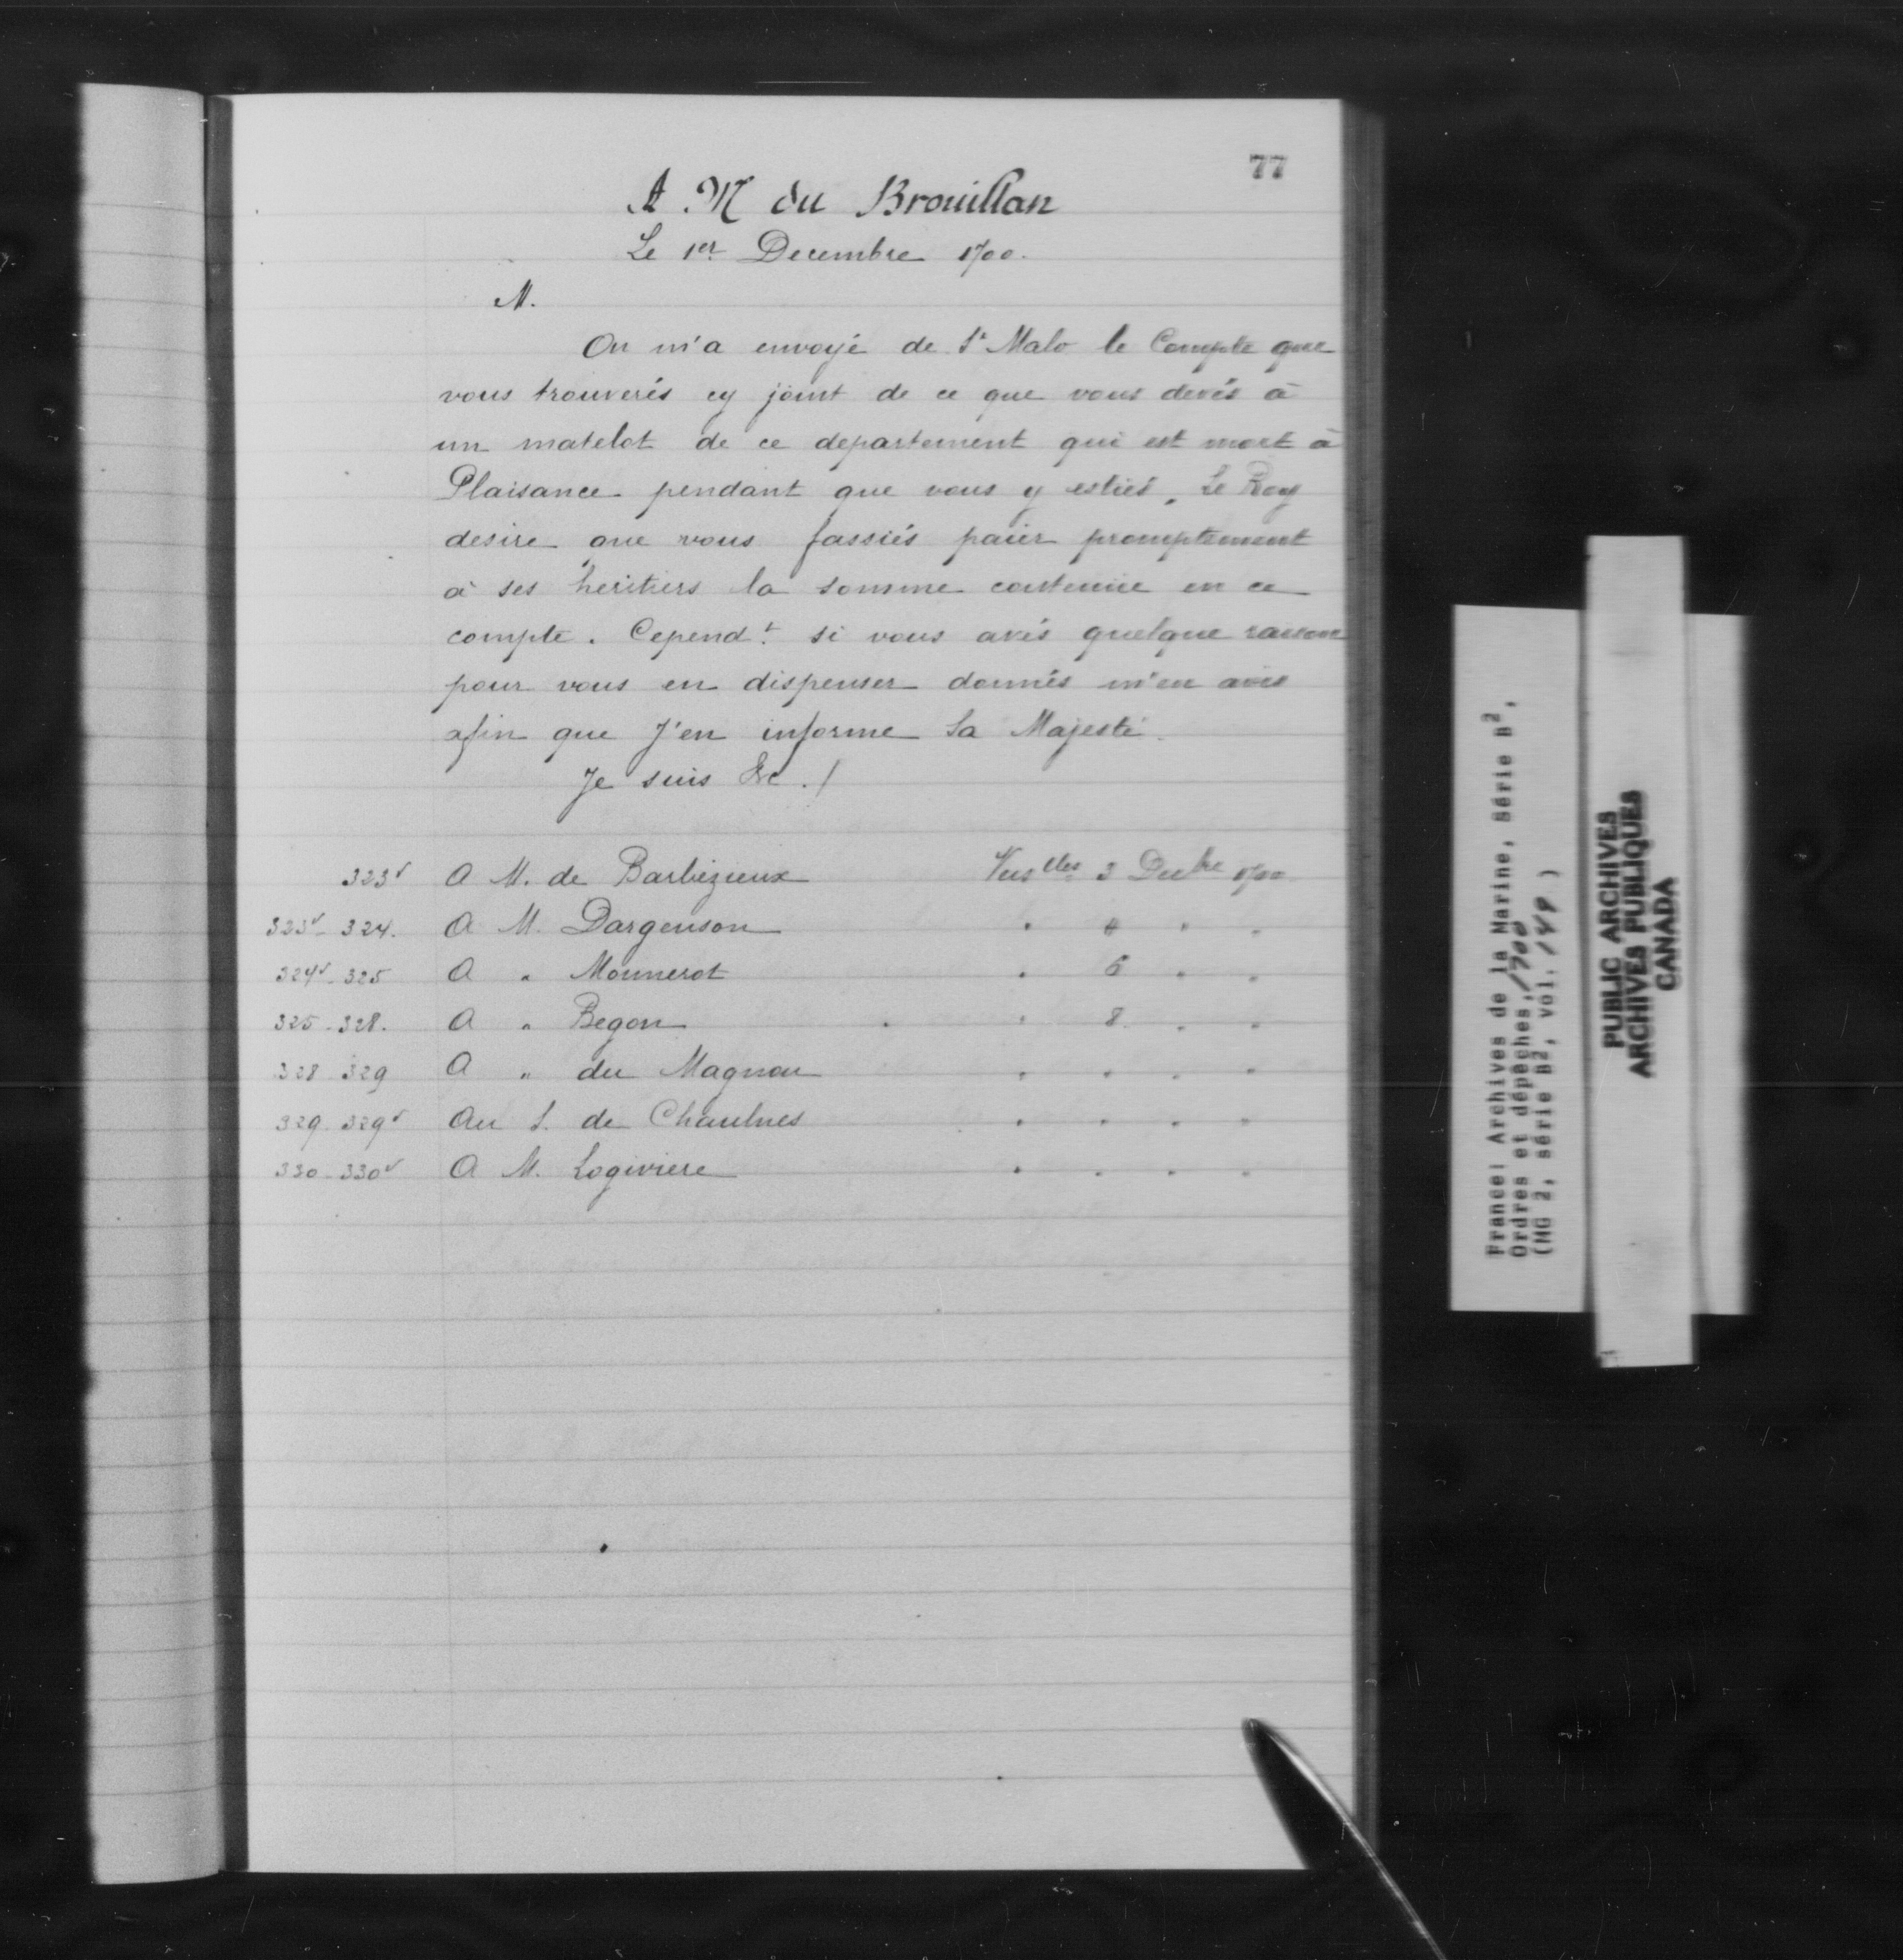 77
A M du Brouillan
Le 1er Decembre 1700.
M.
On m'a envoyé de St Malo le Compte que
vous trouverés cy joint de ce que vous devés à
un matelot de ce departement qui est mort à
Plaisance pendant que vous y estiés. Le Roy
desire que vous fassiés paier promptement
à ses heritiers la somme contenue en ce
compte. Cependt si vous avés quelque raison
pour vous en dispenser donnés m'en avis
afin que J'en informe Sa Majesté.
Je suis &c./
323v A M. de Barbezieux Verslles 3 Decbre 1700
323v-324. A M. Dargenson " " " "
324v-325 A " Monnerot " 6 " "
325-328. A " Begon " 8 " "
328 329 A " du Magnou " " " "
329-329v Au S. de Chaulnes " " " "
330-330v A M. Logiviere " " " "
France: Archives de la Marine, Série B2,
Ordres et dépêches, 1700
(MG 2, série B2, vol. 149)
PUBLIC ARCHIVES
ARCHIVES PUBLIQUES
CANADA